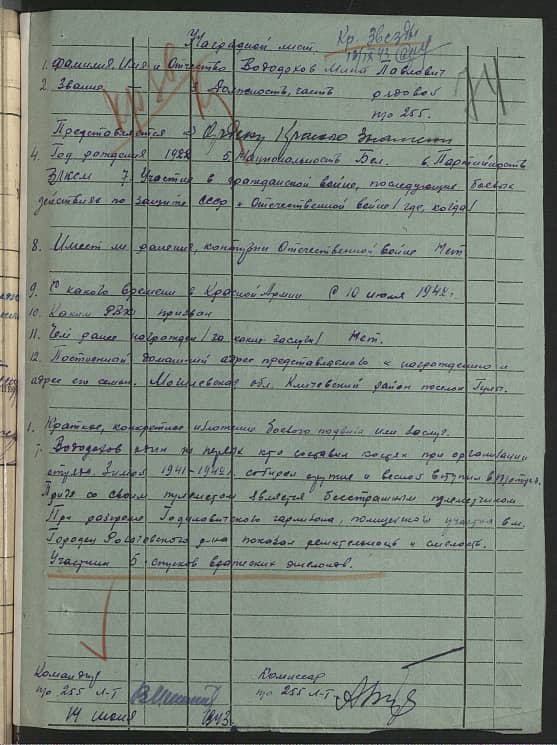 Наградной лист
Кр. Звезды
74
1. Фамилия Имя и Отчество Вододохов Мина Павлович
2. Звание — 3. Должность, часть рядовой
п/о 255.
Представляется к Ордену Красного Знамени
4. Год рождения 1922 5. Национальность Бел. 6 Партийность
ВЛКСМ 7. Участие в гражданской войне, последующие боевых
действиях по защите СССР и Отечественной войне /где, когда/
8. Имеет ли ранения, контузии Отечественной войне Нет
9. С какого времени в Красной Армии С 10 июля 1942 г.
10. Каким РВК призван
11. Чем ранее награжден /за какие заслуги/ Нет.
12. Постоянной домашний адрес представляемого к награждению и
адрес его семьи. Могилевская обл. Кличевский район поселок
1. Краткое, конкретное изложение боевого подвига или заслуг.
Вододохов один из первых кто составил костяк при организации
отряда. Зимой 1941-1942 г. собирал оружие и весной вступил в п/отряд.
со своим пулеметом является бесстрашным пулеметчиком
При разгроме гарнизона, полицейский участка в м.
Городец р-на показал решительность и смелость.
Участник 5 спусков вражеских эшелонов.
Командир
п/о 255 Л-Т
Комиссар
п/о 255 Л-Т
14 июня 1943 г.